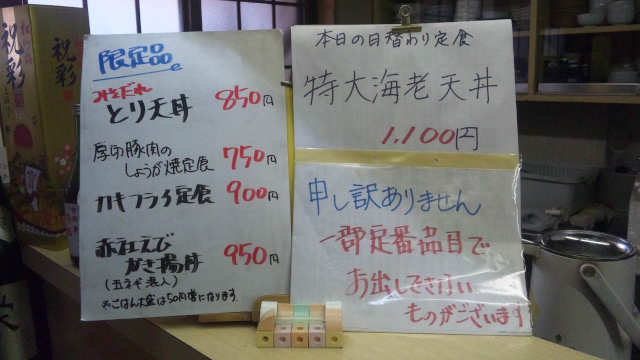 祝彩
祝彩
限定品
みそだれ
とり天丼 850円
厚切豚肉の
しょうが焼定食 750円
カキフライ定食 900円
かき揚丼 950円
(玉ネギ混入)
ごはん大盛は50円増になります
本日の日替わり定食
特大海老天丼
1,100円
申し訳ありません
一部定番品目で
お出しできない
ものがございます